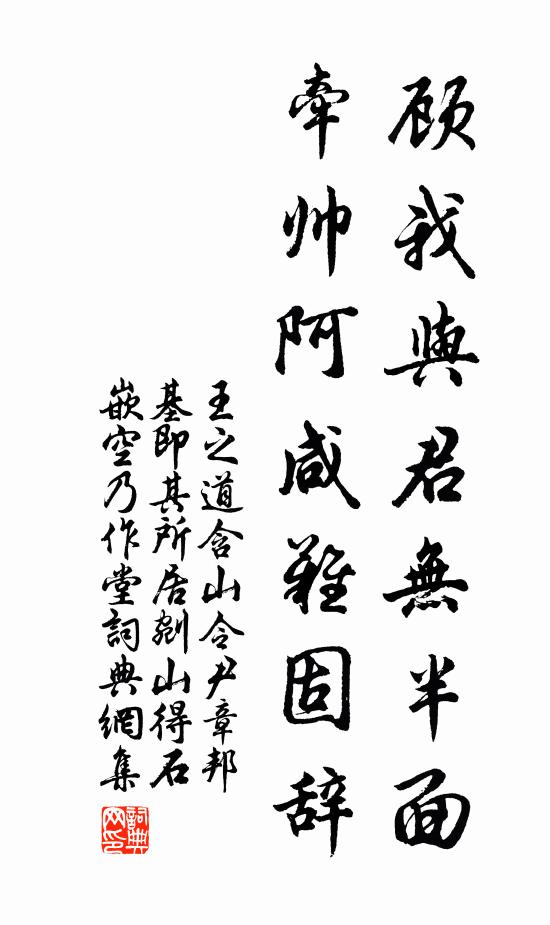 顾我與君無半面
牽帅阿咸難固辞
王之道含山令尹章邦
基即其所居剜山得石
嵌空乃作堂詞典網集
詞典网印